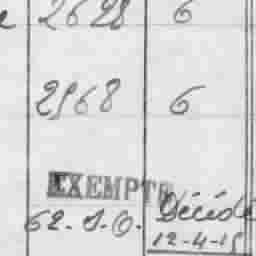 2698 6
2968 6
EXEMPTÉ
62. S.O. Décédé
12-4-15